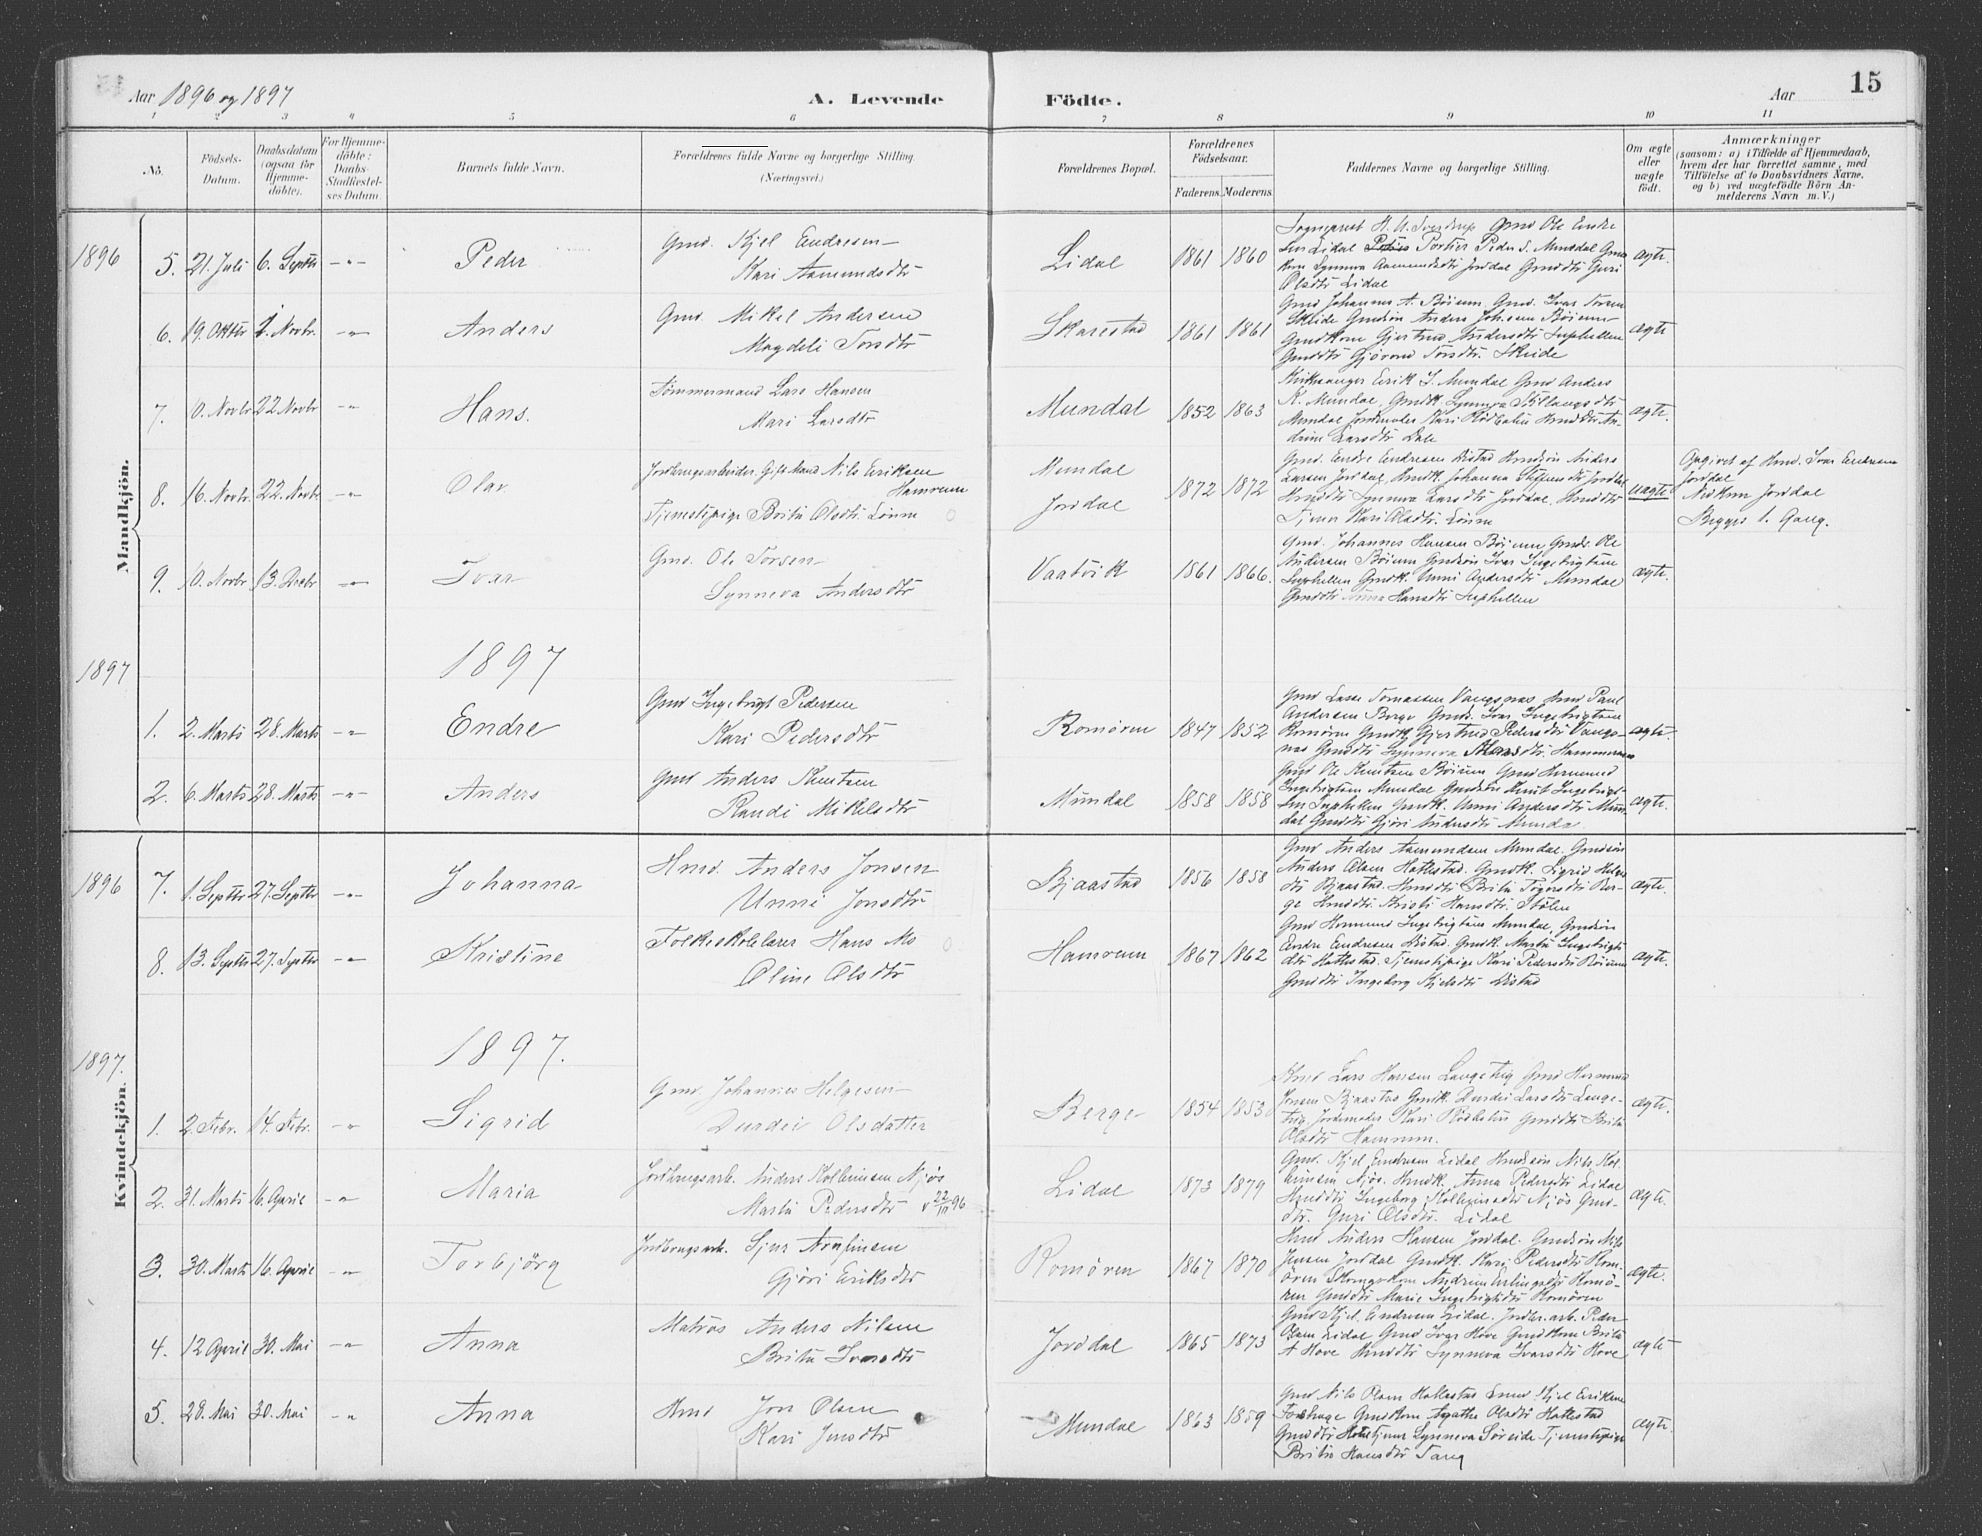 15
Aar 1896 og 1897
A. Levende
Födte.
Aar
1 2 3 4 5 6 7 8 9 10 11
No.
Födsels-
Datum.
Daabsdatum
(ogsaa för
Hjemme-
döbte).
For Hjemme-
döbte:
Daabs-
Stadfæstel-
ses Datum.
Barnets fulde Navn.
Forældrenes fulde Navne og borgerlige Stilling.
(Næringsvei.)
Forældrenes Bopæl.
Forældrenes
Födselsaar.
Faderens. Moderens.
Faddernes Navne og borgerlige Stilling.
Om ægte
eller
uægte
födt.
Anmærkninger
(saasom: a) i Tilfælde af Hjemmedaab,
hvem der har forrettet samme, med
Tilföielse af to Daabsvidners Navne,
og b) ved uægtefödte Börn An-
melderens Navn m. V.)
Mandkjön.
1896
5. 21. Juli 6. Septbr -"- Peder
Gmd. Kjel Endresen
Kari Aamundsdtr
Lidal 1861 1860
Sogneprest H. U. Sverdrup Gmd Ole Endre
sen Lidal Portier Peder S. Mundal Gmd
kone Synneva Aamundsdtr Jordal Gmdtr Guri
Olsdtr Lidal
ægte.
6. 19. Oktbr 1. Novbr. -"- Anders
Gmd. Mikel Andersen
Magdeli Torsdtr
Skarestad 1861 1861
Gmd Johannes A. Böium Gmd. Ivar Torsen
Skeide Gmdsön Anders Johsen Böium
Gmdkone Gjertrud Andersdtr Suphellen
Gmddtr Gjörond Torsdtr. Skeide
ægte
7. 10. Novbr 22 Novbr -"- Hans.
Tömmermand Lars Hansen
Mari Larsdtr
Mundal 1852 1863
Kirkesanger Eirik J. Mundal Gmd Anders
K. Mundal, Gmdk Synneva
Mundal Jordmoder Kari Rödbotn Hmddtr An-
drine Larsdtr Dale
ægte.
8. 16. Novbr. 22. Novbr. -"- Olav
Jordbrugsarbeider. Gift Mand Nils Eriksen
Hamrum
Tjenestepige Brita Olsdtr. Lönne
Mundal
Jordal
1872 1872
Gmd. Endre Endresen Distad Hmdsön Anders
Larsen Jordal, Hmdk. Johanna Steffensdtr Jordal
Hmddtr Synneva Larsdtr Jordal, Hmddtr
Tjener Kari Olsdtr. Lönne
uægte
Opgivet af Hmd. Ivar Endresen
Jordal
Begges 1. Gang.
9. 10. Novbr 13. Decbr -"- Ivar
Gmd. Ole Torsen
Synneva Andersdtr
Vaatvik 1861 1866.
Gmd. Johannes Hansen Böium Gmds. Ole
Andersen Böium Gmdsön Ivar Ingebrigtsen
Suphellen Gmdk. Unni Andersdtr Mundal
Gmddtr Anna Hansdtr Suphellen
ægte.
1897
1897
1. 2. Marts 28. Marts -"- Endre
Gmd Ingebrigt Pedersen
Kari Pedersdtr
Romören 1847 1852
Gmd Lasse Tomassen Vangsnæs Hmd Paul
Andersen Berge Gmds. Ivar Ingebrigtsen
Romören Gmdk Gjertrud Pedersdtr Vangs-
næs Gmddtr Synneva Hansdtr. Hammeren
ægte.
2. 6. Marts 28. Marts -"- Anders
Gmd Anders Knutsen
Randi Mikelsdtr
Mundal 1858 1858
Gmd Ole Knutsen Böium Gmd Hermund
Ingebrigtsen Mundal Gmdsön Knut Ingebrigt-
sen Suphellen Gmdk. Unni Andersdtr Mun-
dal Gmddtr Gjöri Andersdtr Mundal
ægte.
Kvindekjön.
1896
7. 1. Septbr 27. Septbr -"- Johanna
Hmd. Anders Jonsen
Unni Jonsdtr
Bjaastad 1856 1858
Gmd Anders Aamundsen Mundal. Gmdsön
Anders Olsen Hatlestad. Gmdk. Sigrid Helges
dtr Bjaastad. Hmddtr Brita Togersdtr Ber-
ge Hmddtr Kristi Hansdtr. Stölen
ægte.
8. 13. Septbr 27. Septbr -"- Kristine
Folkeskolelærer Hans Mo
Oline Olsdtr
Hamrum 1867 1862
Gmd Hermund Ingebrigtsen Mundal, Gmdsön
Endre Endresen Distad. Gmdk. Marta Ingebrigts
dtr Hatlestad. Tjenestepige Kari Pedersdtr Böium
Gmddtr Ingeborg Kjelsdtr Distad
ægte.
1897.
1897.
1. 2. Febr. 14. Febr. -"- Sigrid
Gmd. Johannes Helgesen
Durdei Olsdatter
Berge 1854 1853
Hmd Lars Hansen Langeteig Gmd Hermund
Jonsen Bjaastad Gmdk. Durdei Larsdtr Lange-
teig Jordmoder Kari Rödbotn Gmddtr Brita
Olsdtr Hamrum.
ægte.
2. 31. Marts 16. April -"- Maria
Jordbrugsarb. Anders Kolbeinsen Njös
Marta Pedersdtr v 22/11 96
Lidal 1873 1879
Gmd. Kjel Endresen Lidal Hmdsön Nils Kol-
beinsen Njös. Hmdk. Anna Pedersdtr Lidal
Hmddtr Ingeborg Kolbeinsdtr Njös Gmd-
dtr. Guri Olsdtr. Lidal
ægte.
3. 30. Marts 16. April -"- Torbjörg
Jordbrugsarb. Sjur Arnfinsen
Gjöri Eriksdtr
Romören 1867 1870
Hmd Anders Hansen Jordal. Gmdsön Nils
Jensen Jordal Gmdk. Kari Pedersdtr Rom-
ören Andrine Erlingsdtr Romö-
ren Gmddtr Marie Ingebrigtsdtr Romören
ægte.
4. 12 April 30. Mai -"- Anna
Matros Anders Nilsen
Brita Ivarsdtr
Jordal 1865 1873
Gmd Kjel Endresen Lidal. Jordbr.arb. Peder
Olsen Lidal Gmd Ivar Hove Gmdkone Brita
A Hove Hmddtr Synneva Ivarsdtr Hove
ægte
5. 28. Mai 30. Mai -"- Anna
Hmd Jon Olsen
Kari Jonsdtr
Mundal 1863 1859
Gmd Nils Olsen Hatlestad Gmd Kjel Eriksen
Gmdkone Agathe Olsdtr Hatlestad
Gmddtr Synneva Söreide Tjenestepige
Brita Hansdtr Tang
ægte.